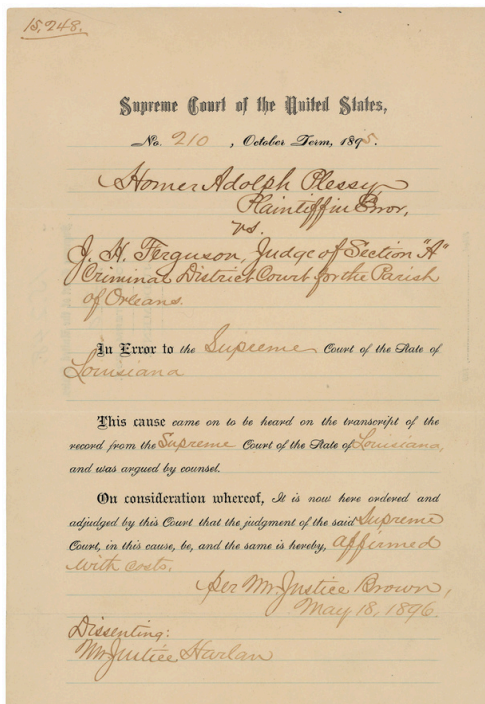 15,248.
Supreme Court of the United States,
No. 210, October Term, 1895.
Homer Adolph Plessy,
Plaintiff in Error,
vs.
J. H. Ferguson, Judge of Section "A"
Criminal District Court for the Parish
of Orleans.
In Error to the Supreme Court of the State of
Louisiana
This cause came on to be heard on the transcript of the
record from the Supreme Court of the State of Louisiana,
and was argued by counsel.
On consideration whereof, It is now here ordered and
adjudged by this Court that the judgment of the said Supreme
Court, in this cause, be, and the same is hereby, affirmed
with costs.
Per Mr. Justice Brown,
May 18, 1896.
Dissenting:
Mr. Justice Harlan